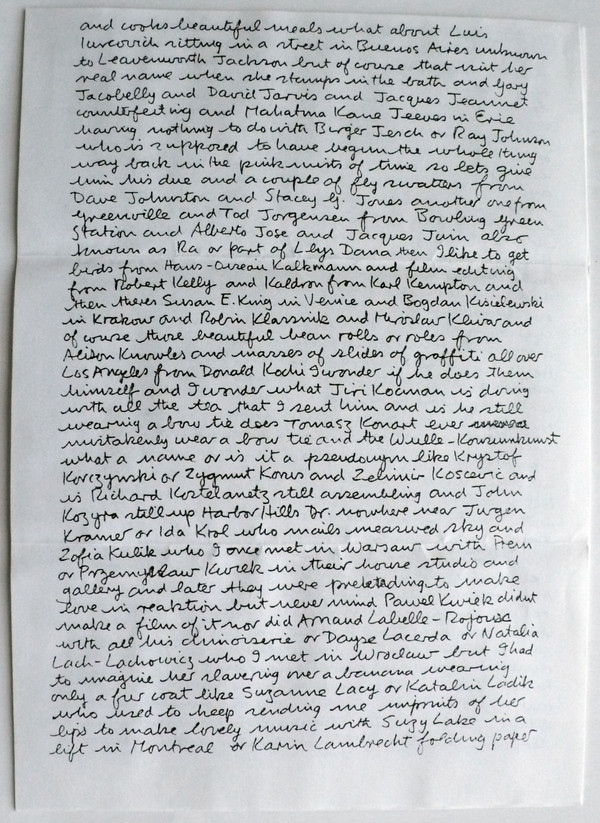 and cooks beautiful meals what about Luis
Iurcovich sitting in a street in Buenos Aires unknown
to Leavenworth Jackson but of course that isnt her
real name when she stamps in the bath and Gary
Jacobelly and David Jarvis and Jacques Jeannet
counterfeiting and Mahatma Kane Jeeves in Erie
having nothing to do with Birger Jesch or Ray Johnson
who is supposed to have begun the whole thing
way back in the pink mists of time so lets give
him his due and a couple of fly swatters from
Dave Johnston and Stacey G. Jones another one from
Greenville and Tod Jorgensen from Bowling Green
Station and Alberto Jose and Jacques Juin also
known as Ra or part of L-bys Dana then I like to get
birds from Hans-Ouseau Kalkmann and film editing
from Robert Kelly and Kaldron from Karl Kempton and
then theres Susan E. King in Venice and Bogdan Kisielewski
in Krakow and Robin Klassnik and Miroslav Klivar and
of course those beautiful bean rolls or roles from
Alison Knowles and masses of slides of graffiti all over
Los Angeles from Donald Kochi I wonder if he does them
himself and I wonder what Jiri Kocman is doing
with all the tea that I sent him and is he still
wearing a bow tie does Tomasz Konart ever
mistakenly wear a bow tie and the Wulle-Konsumkunst
what a name or is it a pseudonym like Krystof
Korczynski or Zygmut Korus and Zelimir Koscevic and
is Richard Kostelanetz still assembling and John
Kozyra still up Harbor Hills Dr. nowhere near Jurgen
Kramer or Ida Krol who mails measured sky and
Zofia Kulik who I once met in Warsaw with Prem
or Przemyslaw Kwiek in their house studio and
gallery and later they were pretending to make
love in reaktion but never mind Pawel Kwiek didnt
make a film of it nor did Arnaud Labelle-Rojoux
with all his chinoiserie or Dayse Lacerda or Natalia
Lach-Lachowicz who I met in Wroclaw but I had
to imagine her slavering over a banana wearing
only a fur coat like Suzanne Lacy or Katalin Ladik
who used to keep sending me imprints of her
lips to make lovely music with Suzy Lake in a
lift in Montreal or Karin Lambrecht folding paper